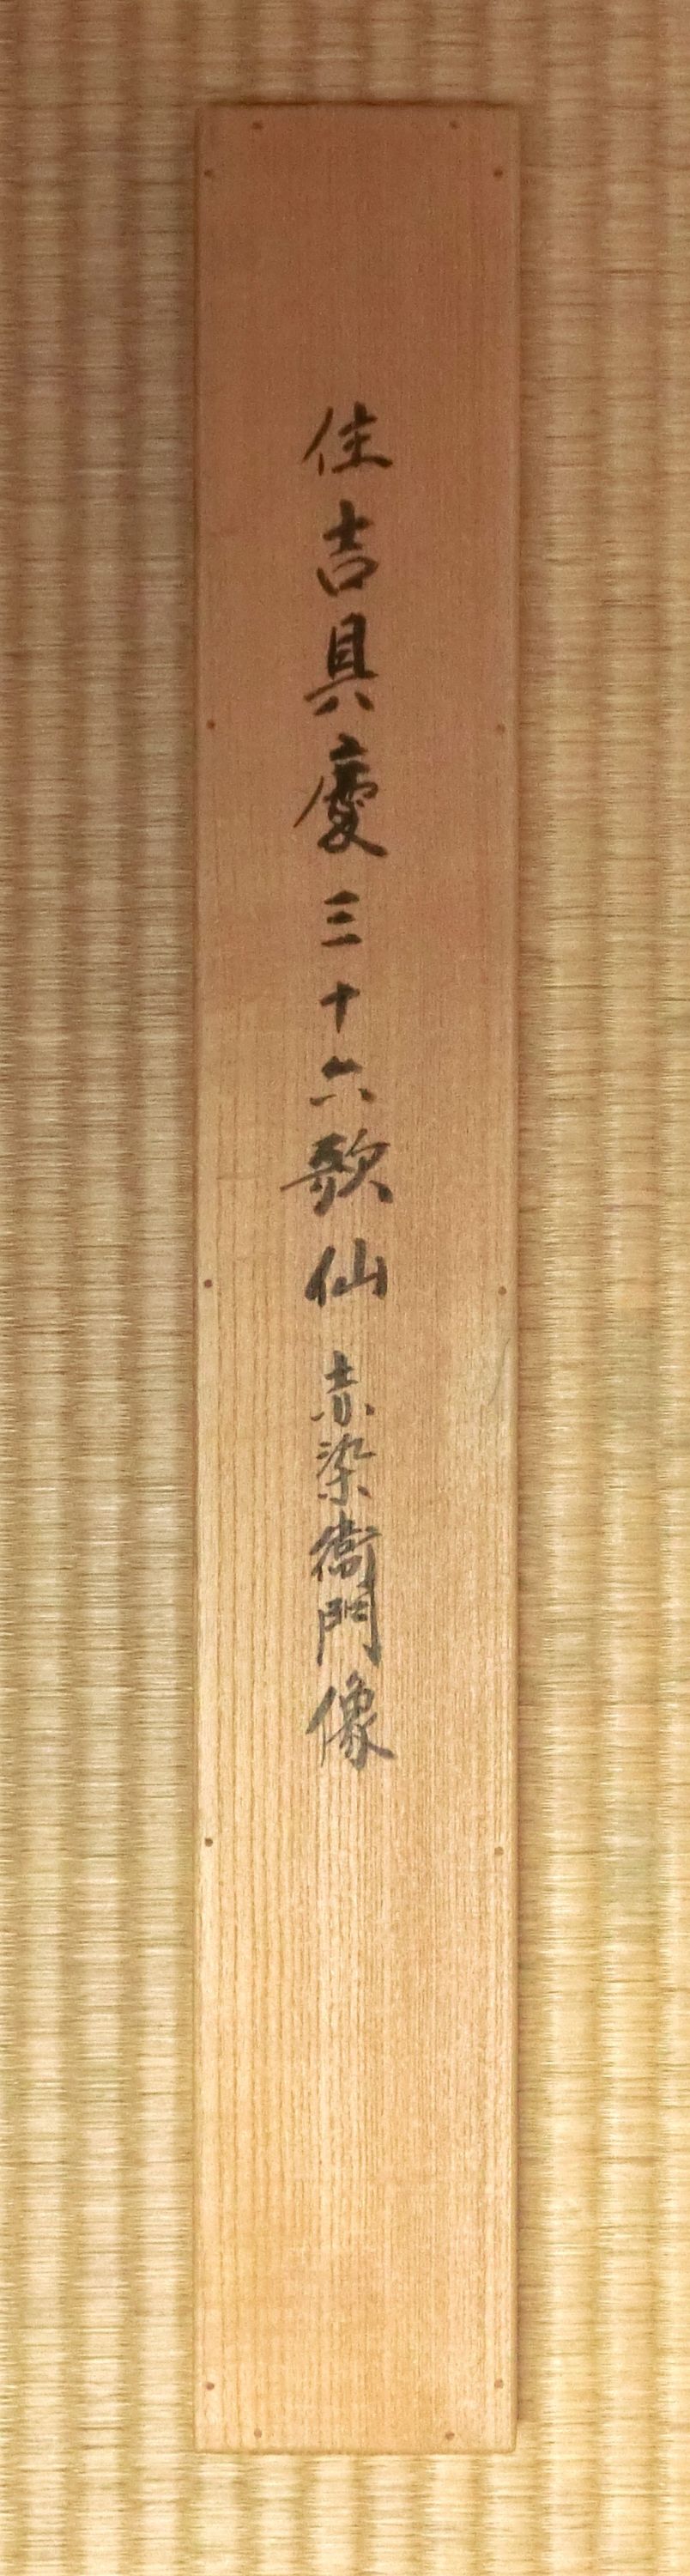 住吉具慶三十六歌仙 赤染衛門像